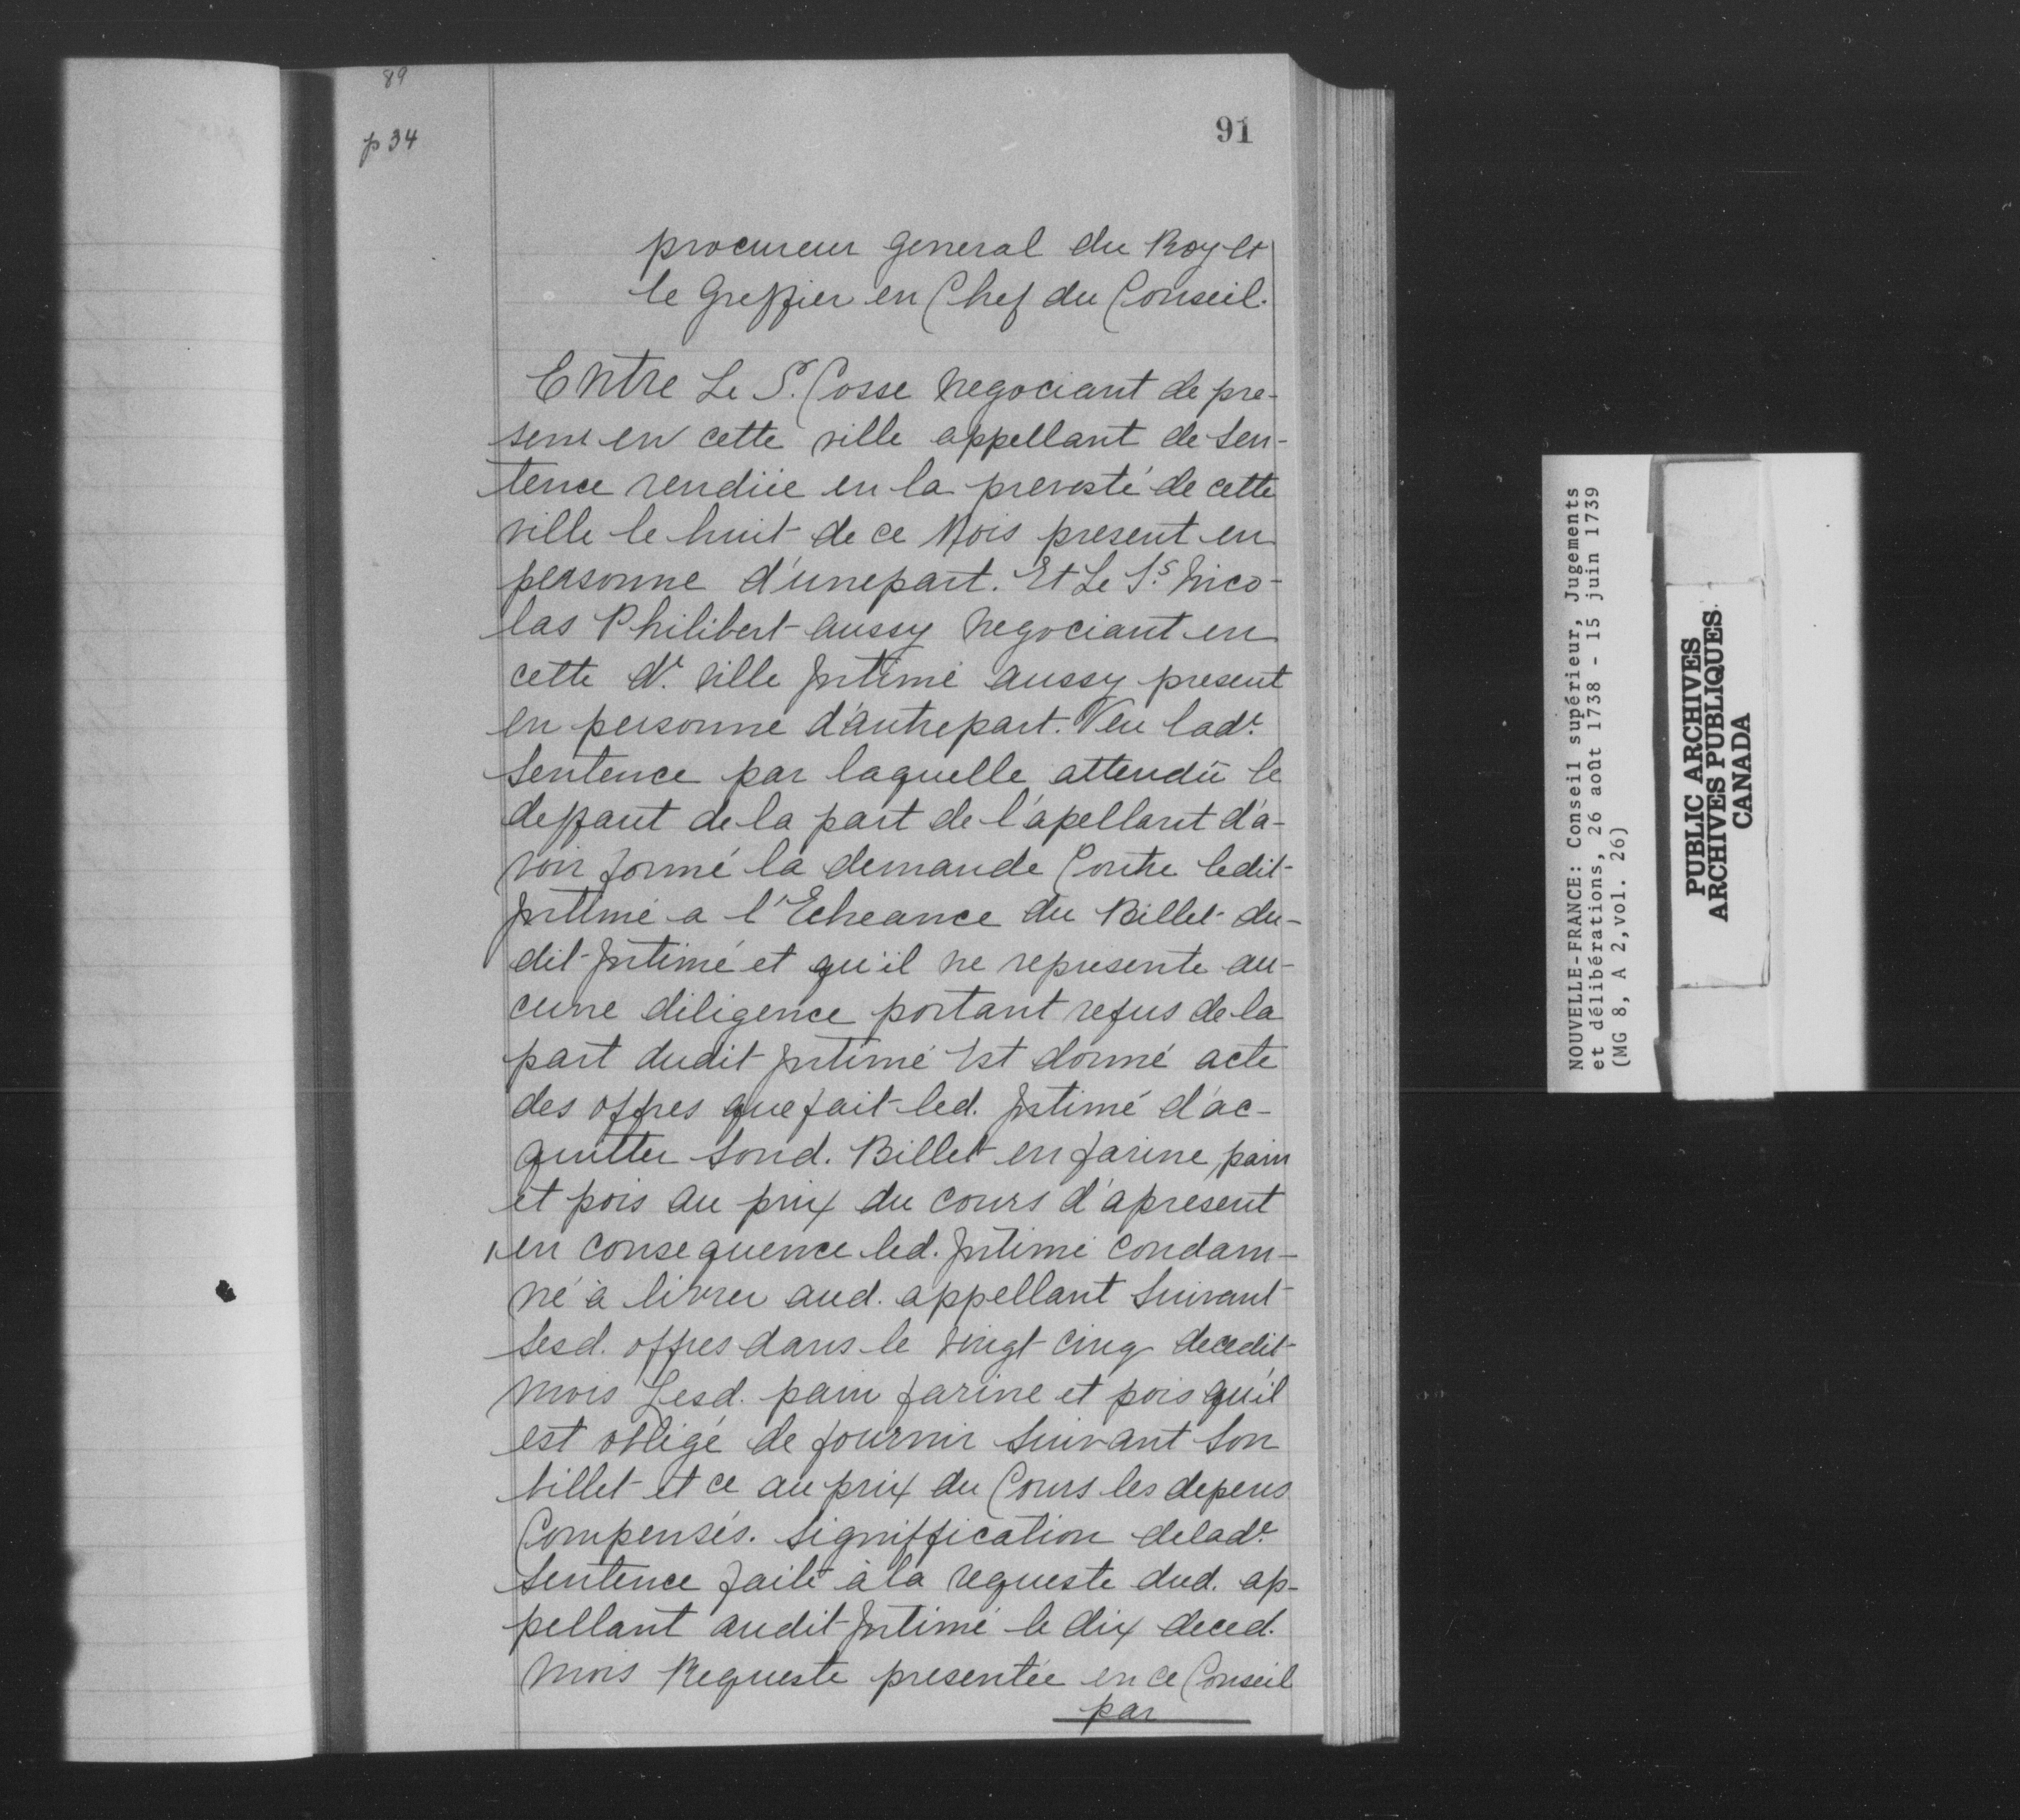 89
p 34
91
procureur general du Roy et
le Greffier en Chef du Conseil.
Entre Le S.r Cosse negociant de pre-
sent en cette ville appellant de sen-
tence rendüe en la prevosté de cette
ville le huit de ce Mois present en
personne d'unepart. Et Le S.s Nico-
las Philibert aussy negociant en
cette d.e ville Intimé aussy present
en personne d'autrepart. Veu lad.e
sentence par laquelle attendü le
deffaut de la part de l'apellant d'a-
voir formé la demande Contre ledit
Intimé a l'Echeance du Billet du-
dit Intimé et qu'il ne represente au-
cune diligence portant refus de la
part dudit Intimé Est donné acte
des offres que fait led. Intimé d'ac-
quitter sond. Billet en farine, pain
et pois au prix du cours d'apresent
en consequence led. Intimé Condam-
né à livrer aud. appellant suivant
sesd. offres dans le vingt cinq decedit
mois Lesd. pain farine et pois qu'il
est obligé de fournir suivant son
billet et ce au prix du Cours les depens
Compensés. Signiffication delad.e
sentence faite à la requeste dud. ap-
pellant audit Intimé le dix deced.
mois Requeste presentée en ce Conseil
par
NOUVELLE-FRANCE: Conseil supérieur, Jugements
et délibérations, 26 août 1738 - 15 juin 1739
(MG 8, A 2,vol. 26)
PUBLIC ARCHIVES
ARCHIVES PUBLIQUES
CANADA